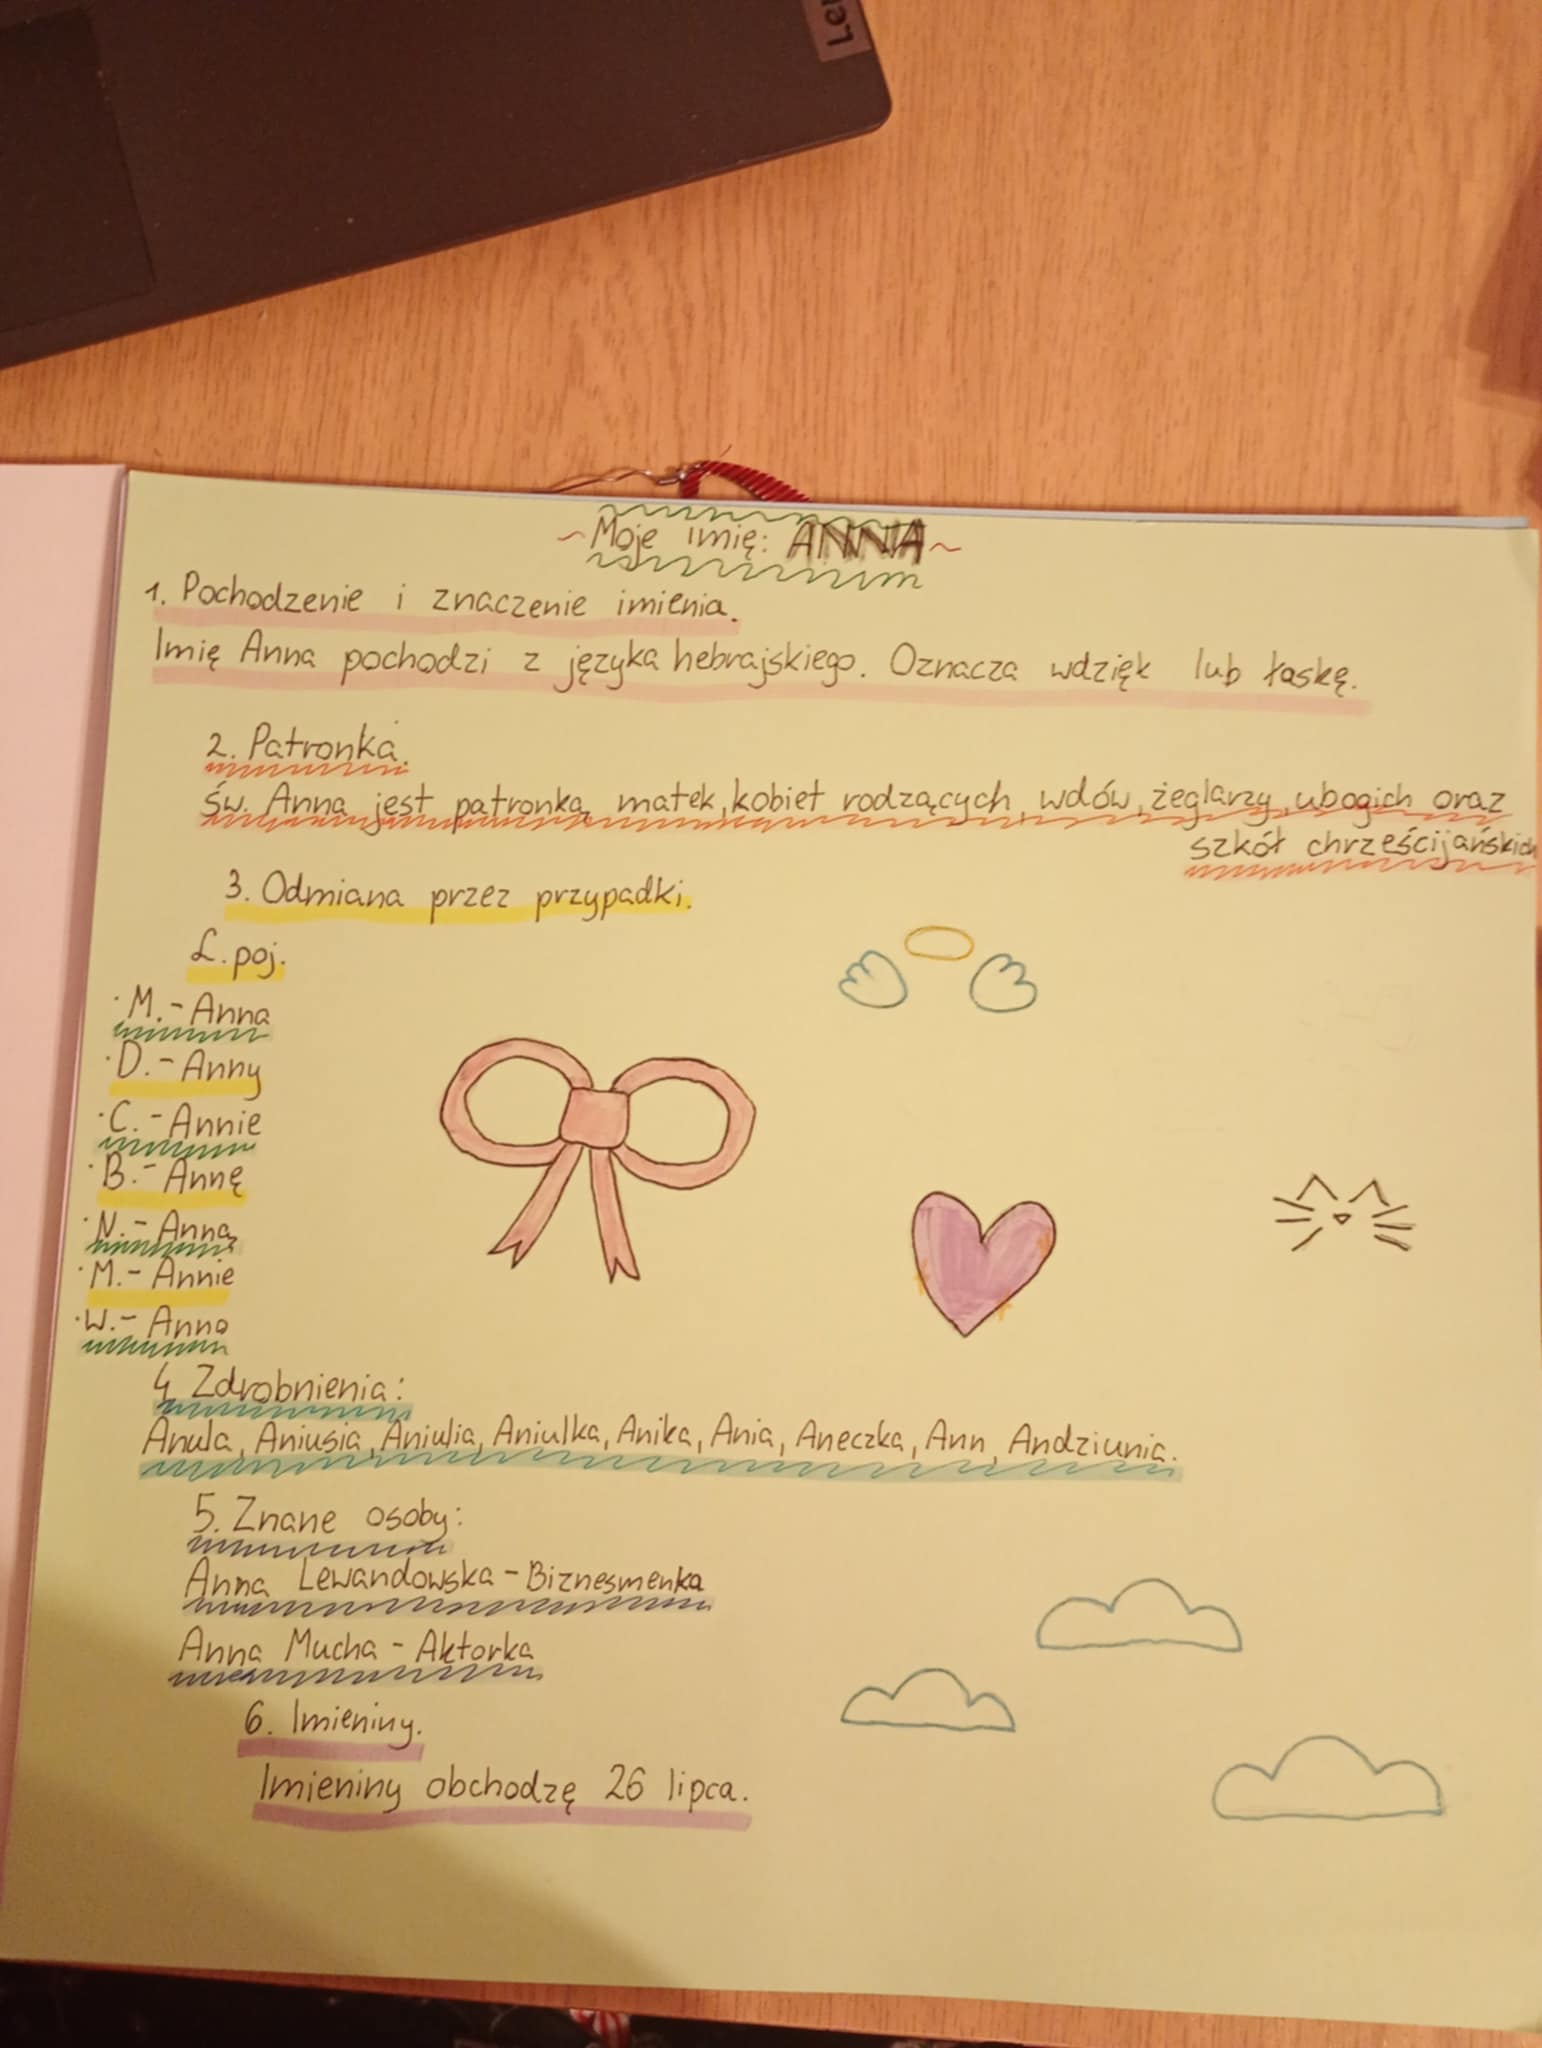 Le
~Moje imię: ANNA~
1. Pochodzenie i znaczenie imienia.
Imię Anna pochodzi z języka hebrajskiego. Oznacza wdzięk lub łaskę.
2. Patronka.
św. Anna jest patronką matek, kobiet rodzących, wdów, żeglarzy, ubogich oraz
szkół chrześcijańskich
3. Odmiana przez przypadki.
L. poj.
·M.- Anna
·D.- Anny
·C.- Annie
·B.- Annę
·N.- Anną
·M.- Annie
·W.- Anno
4 Zdrobnienia:
Anula, Aniusia, Aniulia, Aniulka, Anika, Ania, Aneczka, Ann, Andziunia.
5. Znane osoby:
Anna Lewandowska - Biznesmenka
Anna Mucha - Aktorka
6. Imieniny.
Imieniny obchodzę 26 lipca.